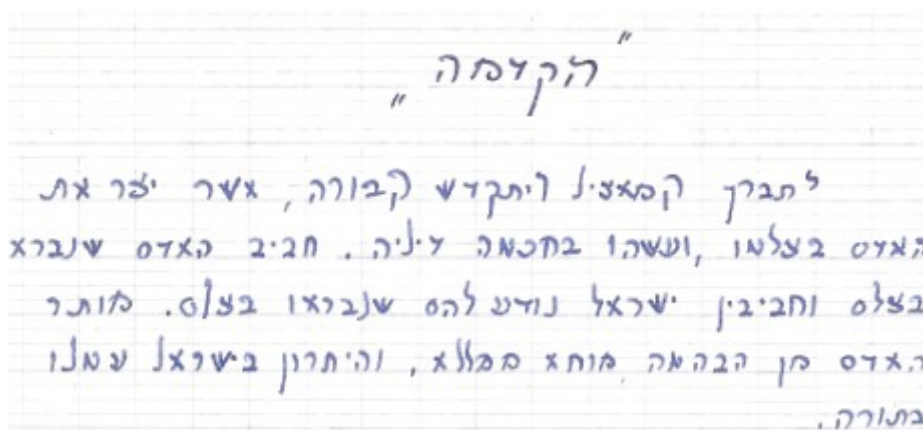 "הקדמה"
יתברך המאציל ויתקדש הבורה, אשר יצר את
האדם בצלמו, ועשהו בחכמה דיליה. חביב האדם שנברא
בצלם וחביבין ישראל נודע להם שנבראו בצלם. מותר
האדם מן הבהמה מוחא ממללא, והיתרון בישראל עמלו
בתורה.